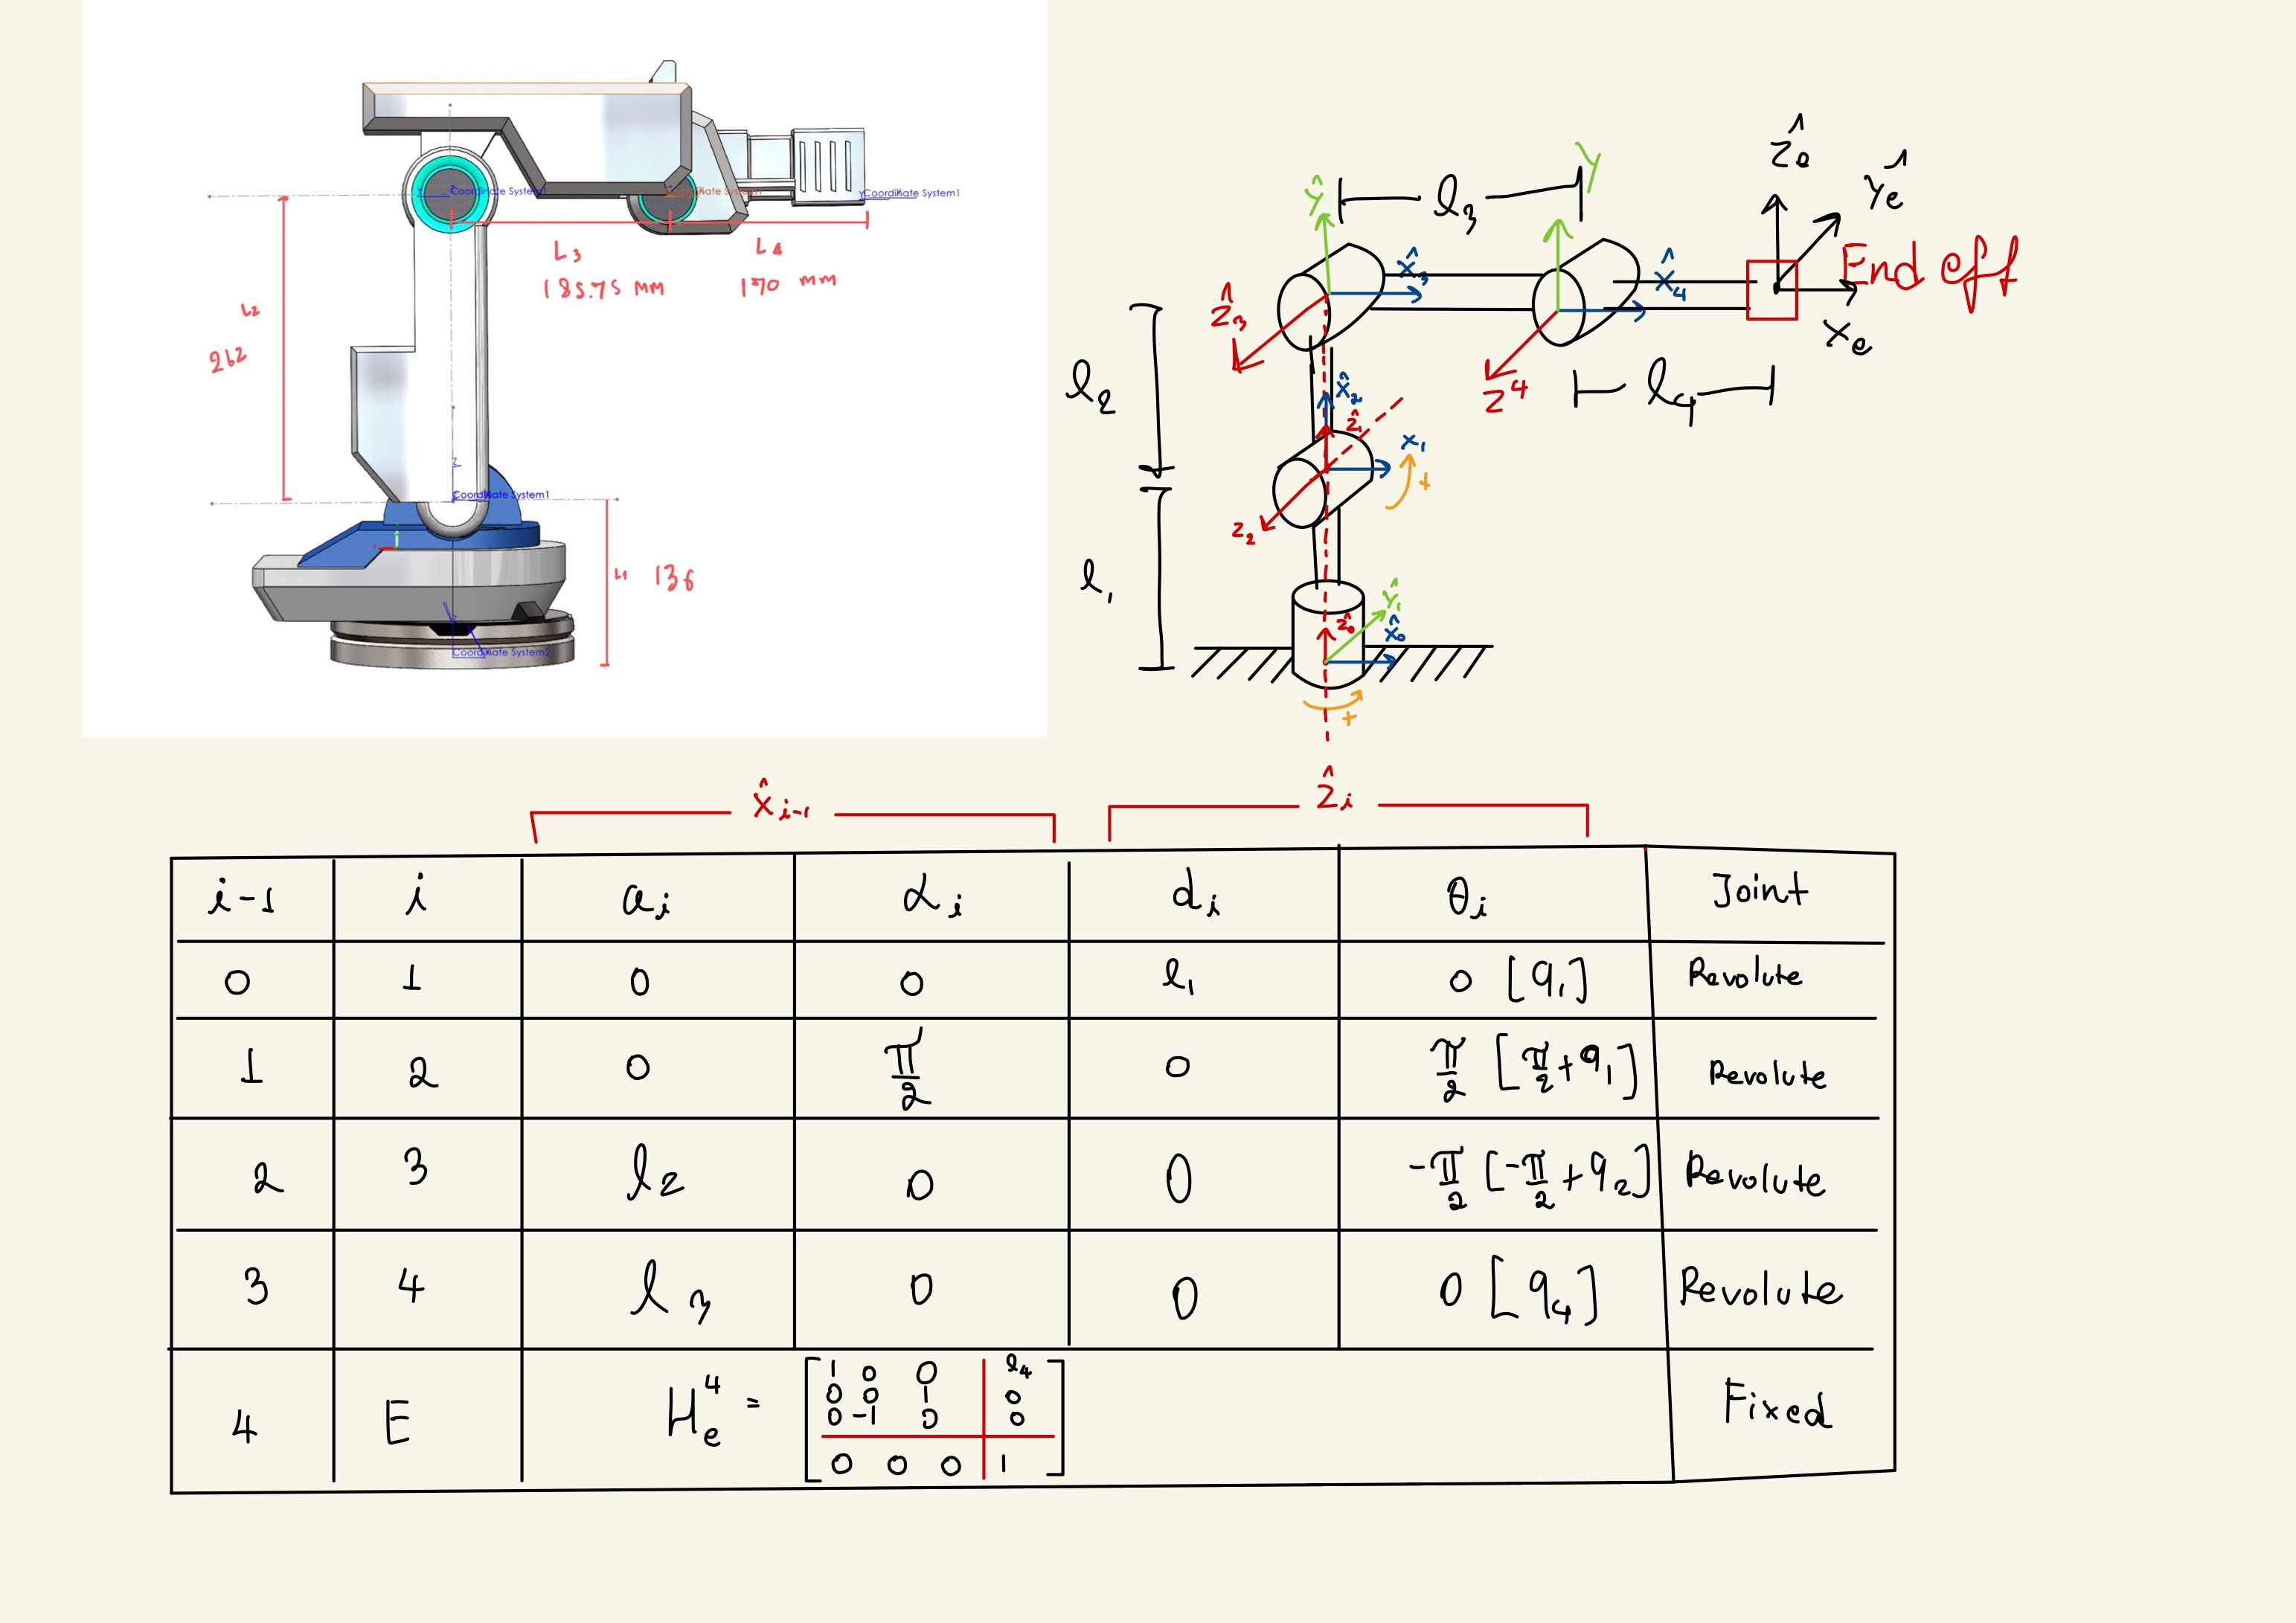 Coordinate System1
YCoordinate System1
L3
185.75 mm
L4
170 mm
L2
262
Coordinate System1
L1 136
Coordinate System2
Ŷ
l3
Y
Ẑe
Ŷe
End eff
Xe
X̂3
X̂4
Ẑ3
Z4
l4
l2
X̂2
Ẑ1
X1
+
Z2
l1
Ŷ1
Ẑ0
X̂0
+
X̂i-1
Ẑi
i-1 i ai αi di θi Joint
0 1 0 0 l1 0 [q1] Revolute
1 2 0 π/2 0 π/2 [π/2+q1] Revolute
2 3 l2 0 0 -π/2 [-π/2+q2] Revolute
3 4 l3 0 0 0 [q4] Revolute
4 E H4e = Fixed
1 0 0 l4
0 0 1 0
0 -1 0 0
0 0 0 1